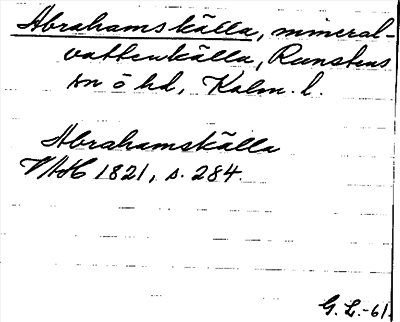 Abrahams källa, mineral-
vattenkälla, Runstens
sn ö hd, Kalm. l.
Abrahamskälla
VAH 1821, s. 284.
G. L. -61.